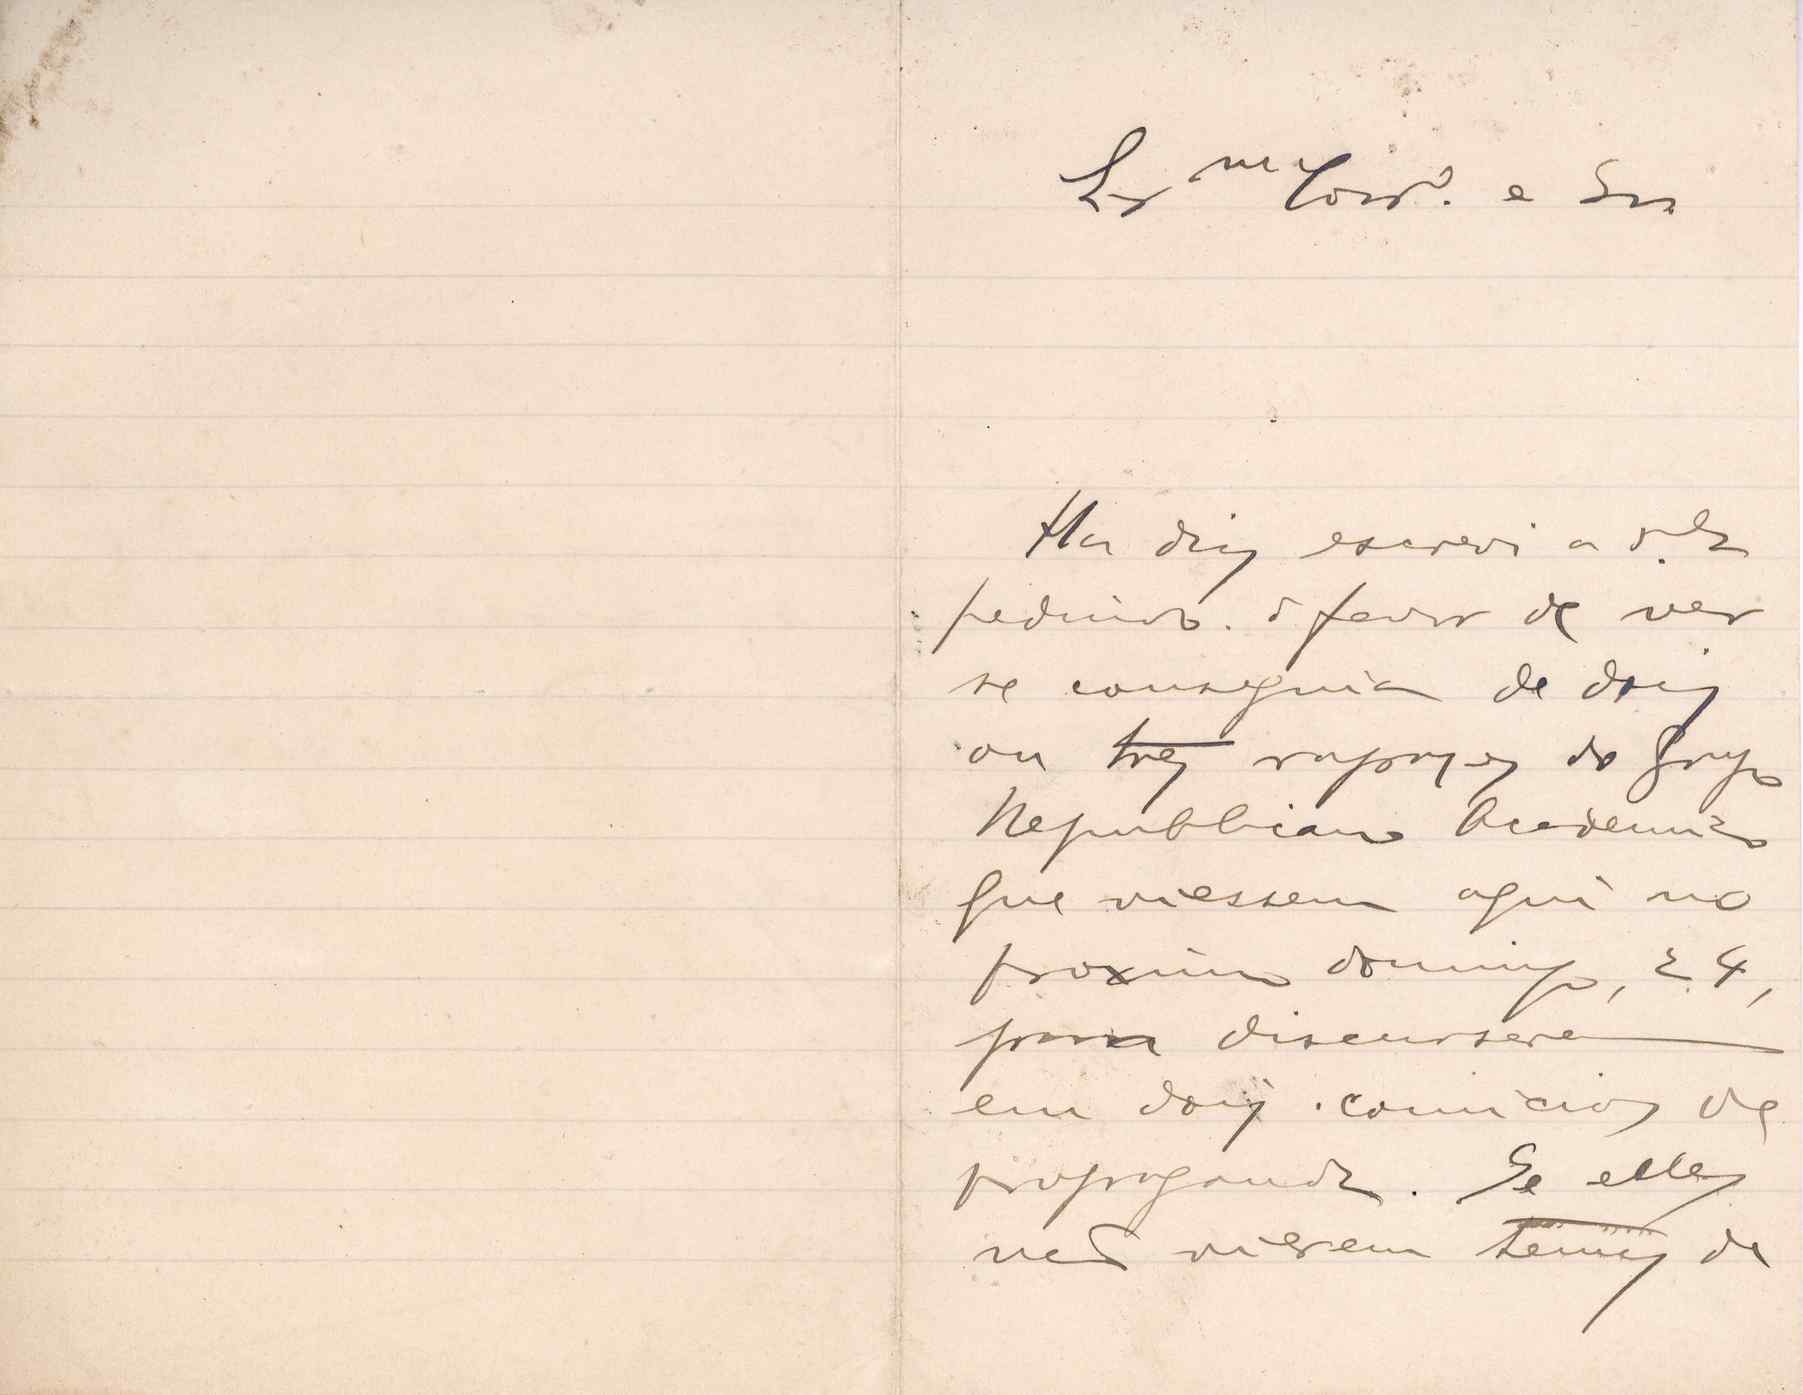 Ex.mo Corr.º e Snr.
Ha dias escrevi a v. Ex.ª
pedindo o favor de ver
se conseguia de dois
ou tres rapazes do Grupo
Republicano Academico
que viessem aqui no
proximo domingo, 24,
para discursarem
em dois comicios de
propaganda. Se elles
não vierem temos de